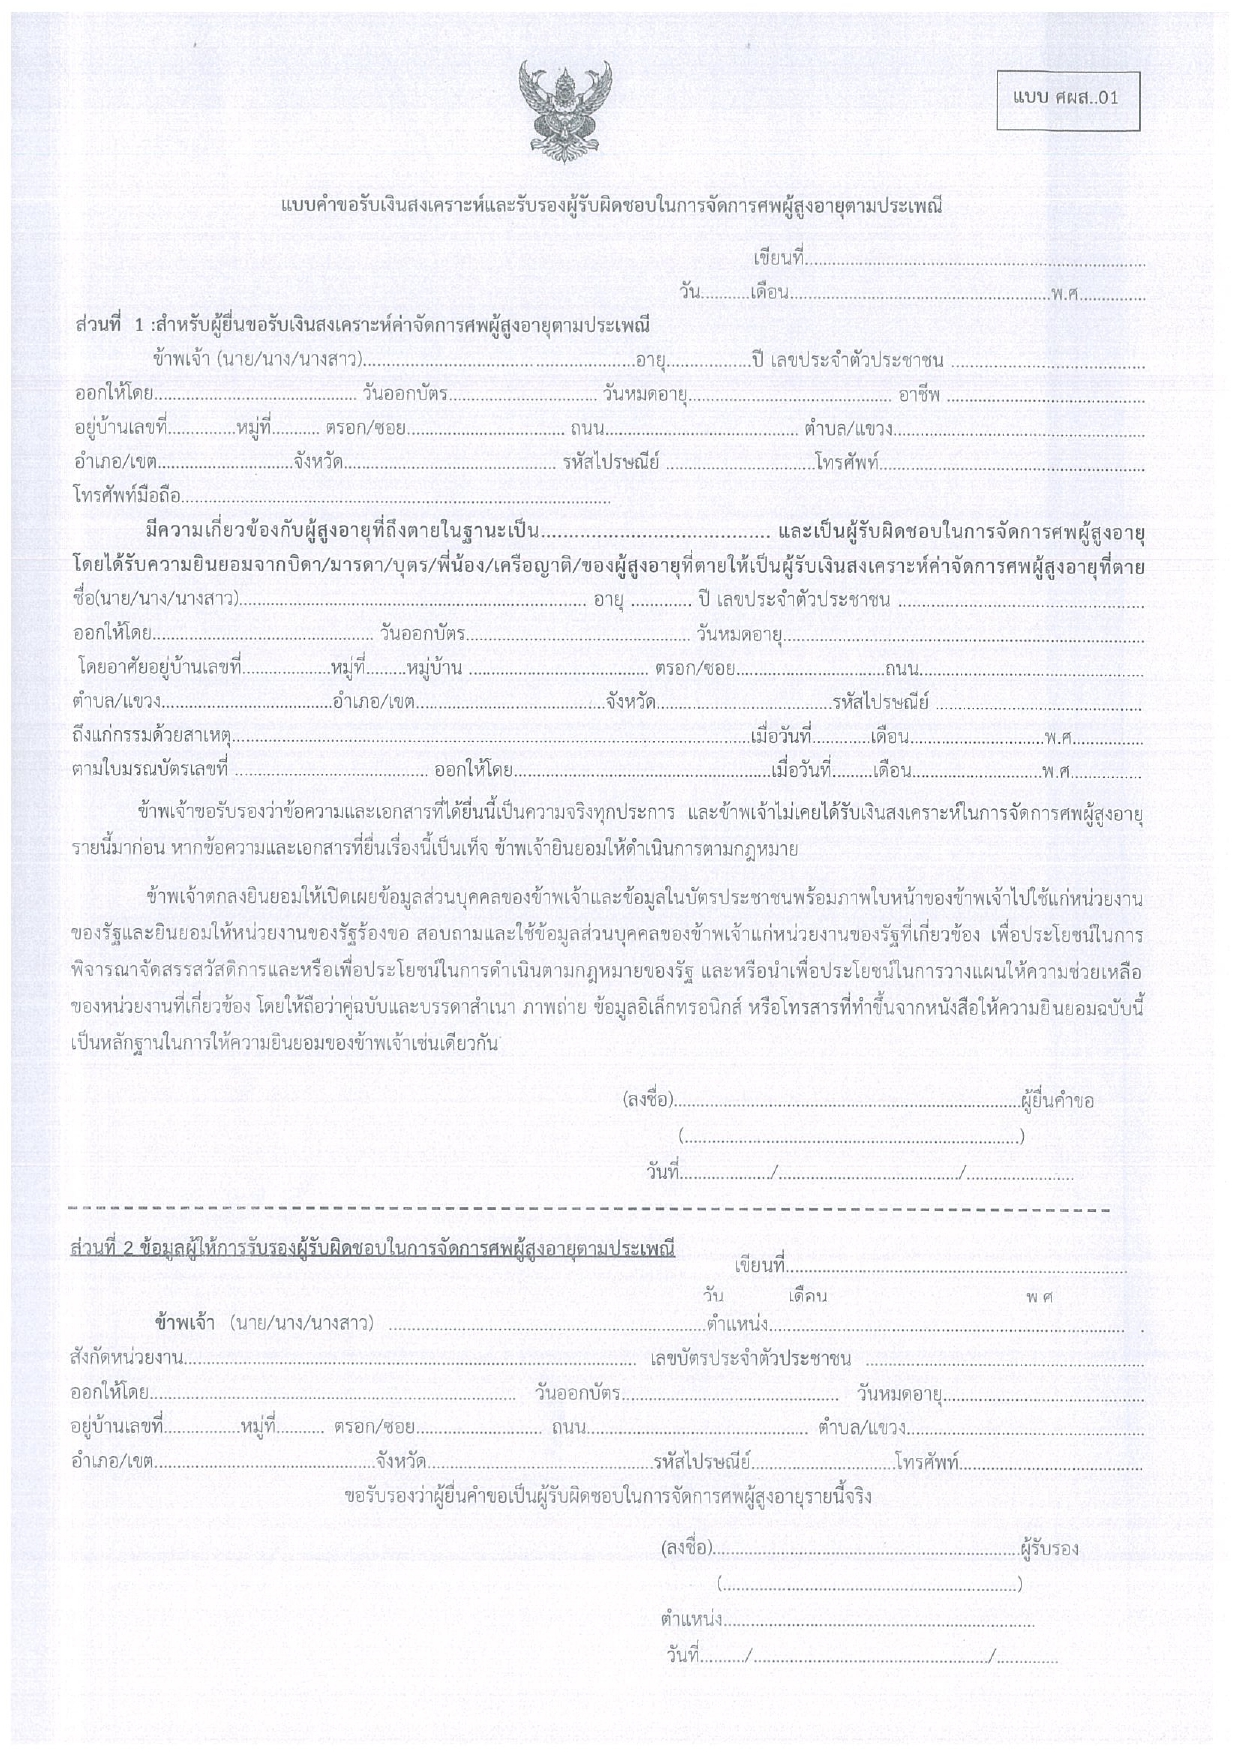 แบบ ศผส..01
แบบคำขอรับเงินสงเคราะห์และรับรองผู้รับผิดชอบในการจัดการศพผู้สูงอายุตามประเพณี
เขียนที่....................
วัน..........เดือน....................พ.ศ..............
ส่วนที่ 1 :สำหรับผู้ยื่นขอรับเงินสงเคราะห์ค่าจัดการศพผู้สูงอายุตามประเพณี
ข้าพเจ้า (นาย/นาง/นางสาว)....................อายุ..................ปี เลขประจำตัวประชาชน ....................
ออกให้โดย.................... วันออกบัตร.................... วันหมดอายุ.................... อาชีพ ....................
อยู่บ้านเลขที่..............หมู่ที่.......... ตรอก/ซอย.................... ถนน.................... ตำบล/แขวง....................
อำเภอ/เขต....................จังหวัด.................... รหัสไปรษณีย์ ....................โทรศัพท์....................
โทรศัพท์มือถือ....................
มีความเกี่ยวข้องกับผู้สูงอายุที่ถึงตายในฐานะเป็น.................... และเป็นผู้รับผิดชอบในการจัดการศพผู้สูงอายุ
โดยได้รับความยินยอมจากบิดา/มารดา/บุตร/พี่น้อง/เครือญาติ/ของผู้สูงอายุที่ตายให้เป็นผู้รับเงินสงเคราะห์ค่าจัดการศพผู้สูงอายุที่ตาย
ชื่อ(นาย/นาง/นางสาว).................... อายุ ............ ปี เลขประจำตัวประชาชน ....................
ออกให้โดย.................... วันออกบัตร.................... วันหมดอายุ....................
โดยอาศัยอยู่บ้านเลขที่..................หมู่ที่........หมู่บ้าน .................... ตรอก/ซอย....................ถนน....................
ตำบล/แขวง....................อำเภอ/เขต....................จังหวัด....................รหัสไปรษณีย์ ....................
ถึงแก่กรรมด้วยสาเหตุ....................เมื่อวันที่............เดือน....................พ.ศ...............
ตามใบมรณบัตรเลขที่ .................... ออกให้โดย....................เมื่อวันที่........เดือน....................พ.ศ...............
ข้าพเจ้าขอรับรองว่าข้อความและเอกสารที่ได้ยื่นนี้เป็นความจริงทุกประการ และข้าพเจ้าไม่เคยได้รับเงินสงเคราะห์ในการจัดการศพผู้สูงอายุ
รายนี้มาก่อน หากข้อความและเอกสารที่ยื่นเรื่องนี้เป็นเท็จ ข้าพเจ้ายินยอมให้ดำเนินการตามกฎหมาย
ข้าพเจ้าตกลงยินยอมให้เปิดเผยข้อมูลส่วนบุคคลของข้าพเจ้าและข้อมูลในบัตรประชาชนพร้อมภาพใบหน้าของข้าพเจ้าไปใช้แก่หน่วยงาน
ของรัฐและยินยอมให้หน่วยงานของรัฐร้องขอ สอบถามและใช้ข้อมูลส่วนบุคคลของข้าพเจ้าแก่หน่วยงานของรัฐที่เกี่ยวข้อง เพื่อประโยชน์ในการ
พิจารณาจัดสรรสวัสดิการและหรือเพื่อประโยชน์ในการดำเนินตามกฎหมายของรัฐ และหรือนำเพื่อประโยชน์ในการวางแผนให้ความช่วยเหลือ
ของหน่วยงานที่เกี่ยวข้อง โดยให้ถือว่าคู่ฉบับและบรรดาสำเนา ภาพถ่าย ข้อมูลอิเล็กทรอนิกส์ หรือโทรสารที่ทำขึ้นจากหนังสือให้ความยินยอมฉบับนี้
เป็นหลักฐานในการให้ความยินยอมของข้าพเจ้าเช่นเดียวกัน
(ลงชื่อ)....................ผู้ยื่นคำขอ
(....................)
วันที่................../..................../....................
ส่วนที่ 2 ข้อมูลผู้ให้การรับรองผู้รับผิดชอบในการจัดการศพผู้สูงอายุตามประเพณี
เขียนที่....................
วัน เดือน พ ศ
ข้าพเจ้า (นาย/นาง/นางสาว) ....................ตำแหน่ง....................
สังกัดหน่วยงาน.................... เลขบัตรประจำตัวประชาชน ....................
ออกให้โดย.................... วันออกบัตร.................... วันหมดอายุ....................
อยู่บ้านเลขที่................หมู่ที่.......... ตรอก/ซอย.................... ถนน.................... ตำบล/แขวง....................
อำเภอ/เขต....................จังหวัด....................รหัสไปรษณีย์....................โทรศัพท์....................
ขอรับรองว่าผู้ยื่นคำขอเป็นผู้รับผิดชอบในการจัดการศพผู้สูงอายุรายนี้จริง
(ลงชื่อ)....................ผู้รับรอง
(....................)
ตำแหน่ง....................
วันที่........./..................../.............